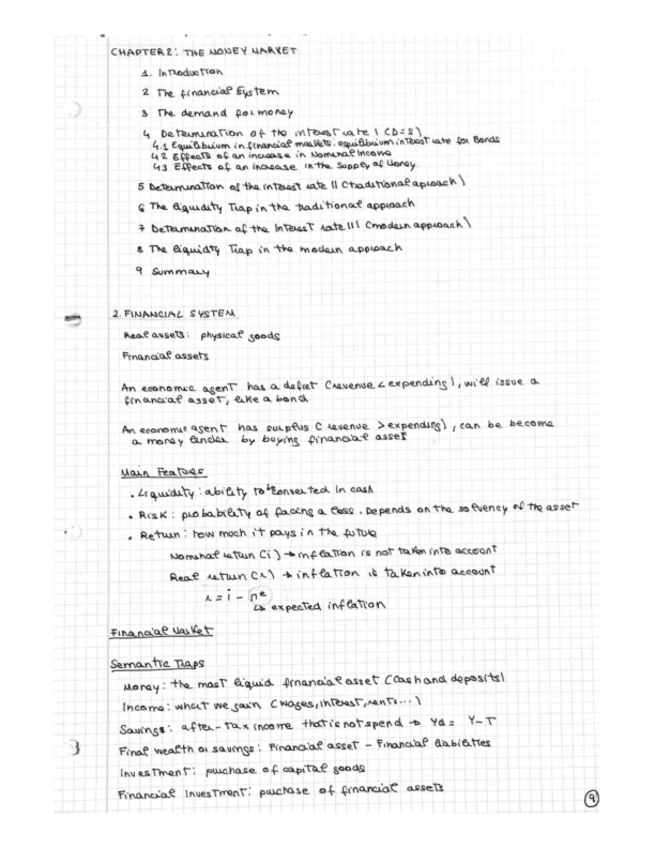 CHAPTER 2: THE MONEY MARKET
1. Introduction
2 The financial System
3 The demand for money
4 Determination of the interest rate I (D=S)
4.1 Equilibrium in financial markets: equilibrium interest rate for Bonds
4.2 Effects of an increase in Nominal Income
4.3 Effects of an increase in the Supply of Money
5 Determination of the interest rate II (traditional aproach)
6 The liquidity Trap in the traditional approach
7 Determination of the Interest rate III (modern approach)
8 The liquidity Trap in the modern approach
9 Summary
2. FINANCIAL SYSTEM
Real assets: physical goods
Financial assets
An economic agent has a deficit (revenue < expending), will issue a
financial asset, like a bond
An economic agent has surplus (revenue > expending), can be become
a money lender by buying financial asset
Main Features
. Liquidity: ability to be converted in cash
. Risk: probability of facing a loss. Depends on the solvency of the asset
. Return: how much it pays in the future
Nominal return (i) → inflation is not taken into account
Real return (r) → inflation is taken into account
r = i - πe
↳ expected inflation
Financial Market
Semantic Traps
Money: the most liquid financial asset (cash and deposits)
Income: what we gain (wages, interest, rents...)
Savings: after-tax income that is not spend → Yd = Y-T
Final wealth or savings: Financial asset - Financial liabilities
Investment: purchase of capital goods
Financial Investment: purchase of financial assets
9